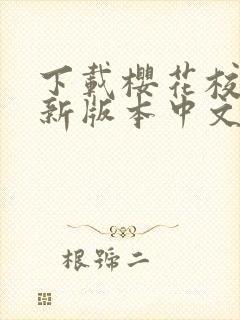 下載櫻花校
新版本中文
根號二